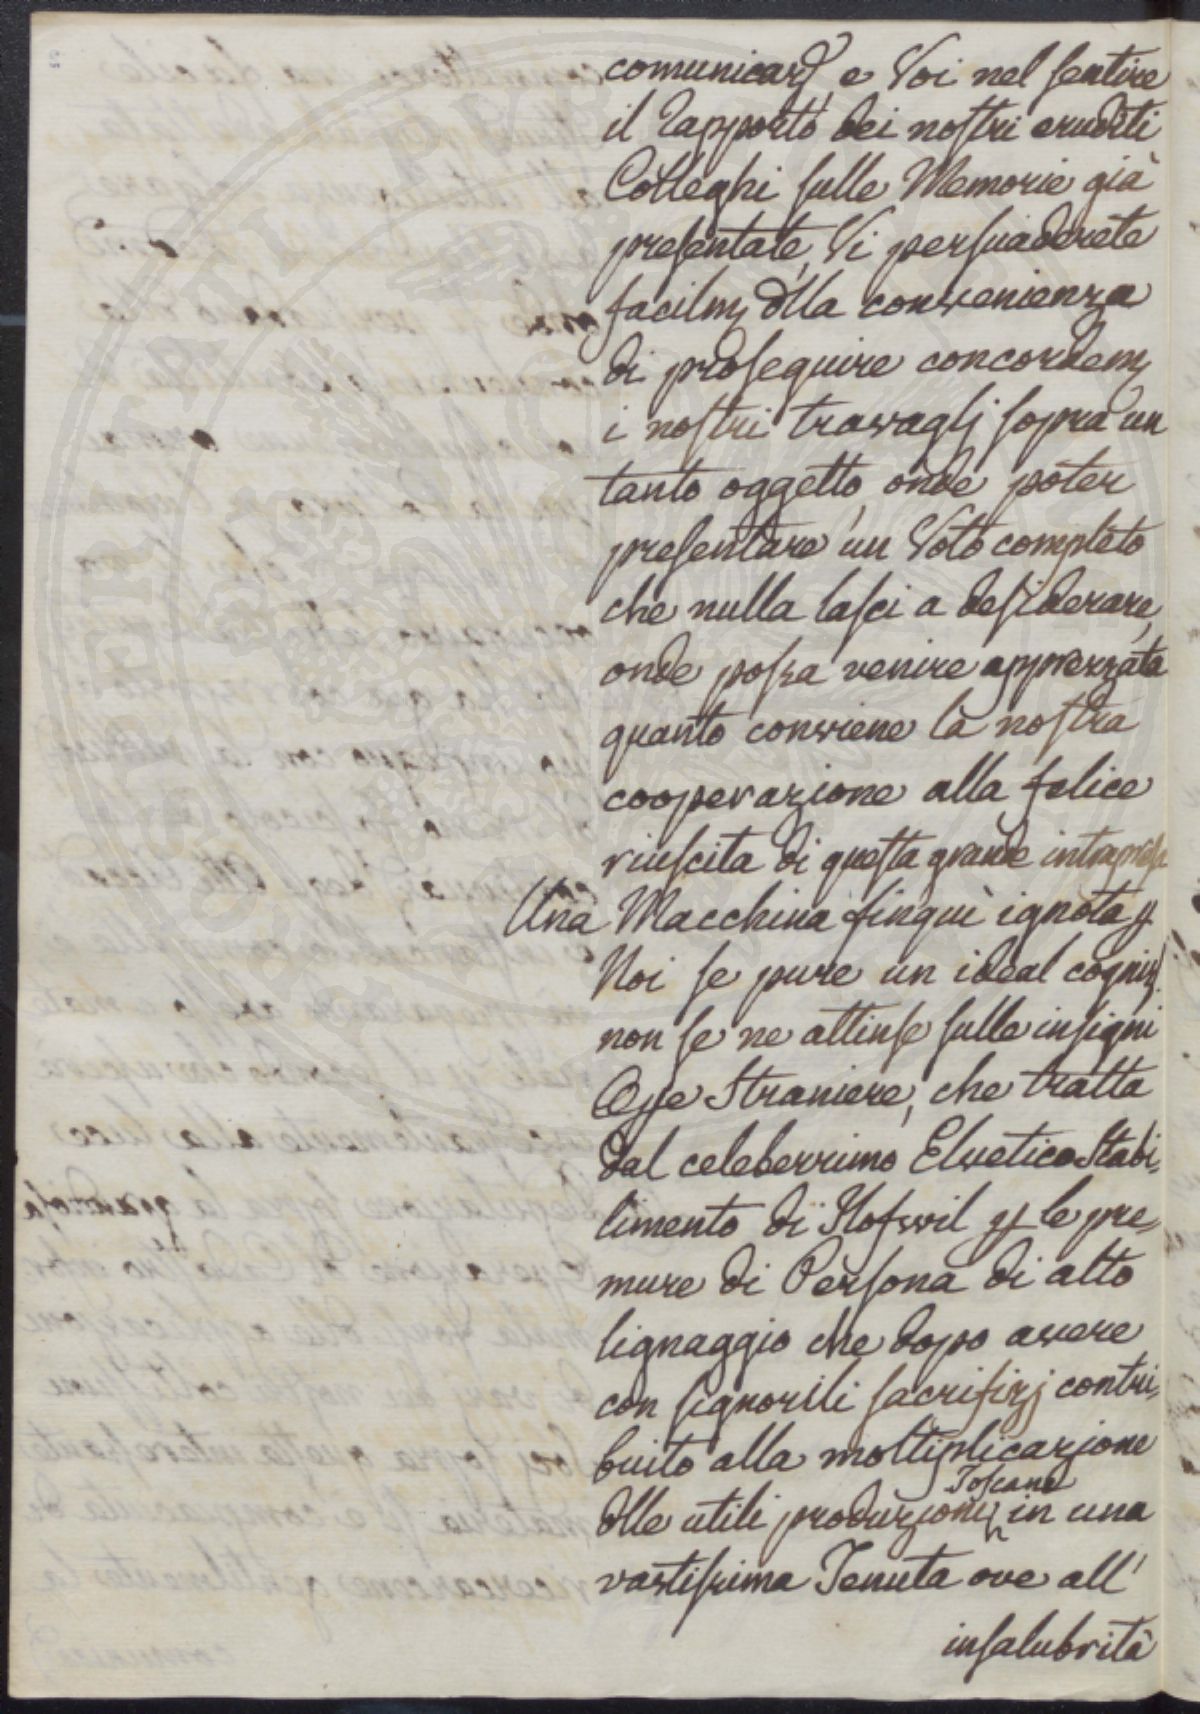 comunicarj, e Voi nel sentire
il Rapporto dei nostri eruditi
Colleghi sulle Memorie già
presentate, Vi persuaderete
facilmẽ dlla convenienza
di proseguire concordemẽ
i nostri travaglj sopra un
tanto oggetto, onde poter
presentare un Voto completo
che nulla lasci a desiderare,
onde possa venire apprezzata
quanto conviene la nostra
cooperazione alla felice
riuscita di questa grande intrapresa
Una Macchina finquì ignota p
Noi se pure un ideal cogniz.
non se ne attinse sulle insigni
Opre Straniere, che tratta
dal celeberrimo Elvetico Stabi,
limento di Hofwil p le pre,
mure di Persona di alto
lignaggio che dopo avere
con signorili sacrifizj contri,
buito alla moltiplicazione
Toscane
dlle utili produzioni in una
vastissima Tenuta ove all'
insalubrità
SUPERIORITATI PUBLICAE